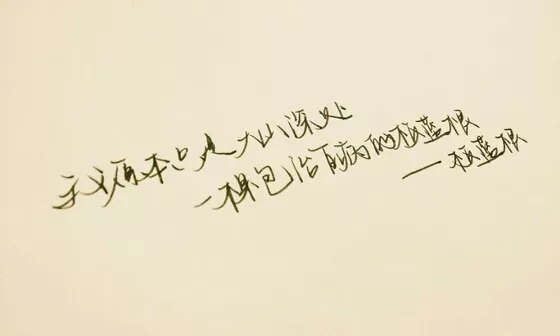 我原本只是大山深处
一棵包治百病的板蓝根
——板蓝根